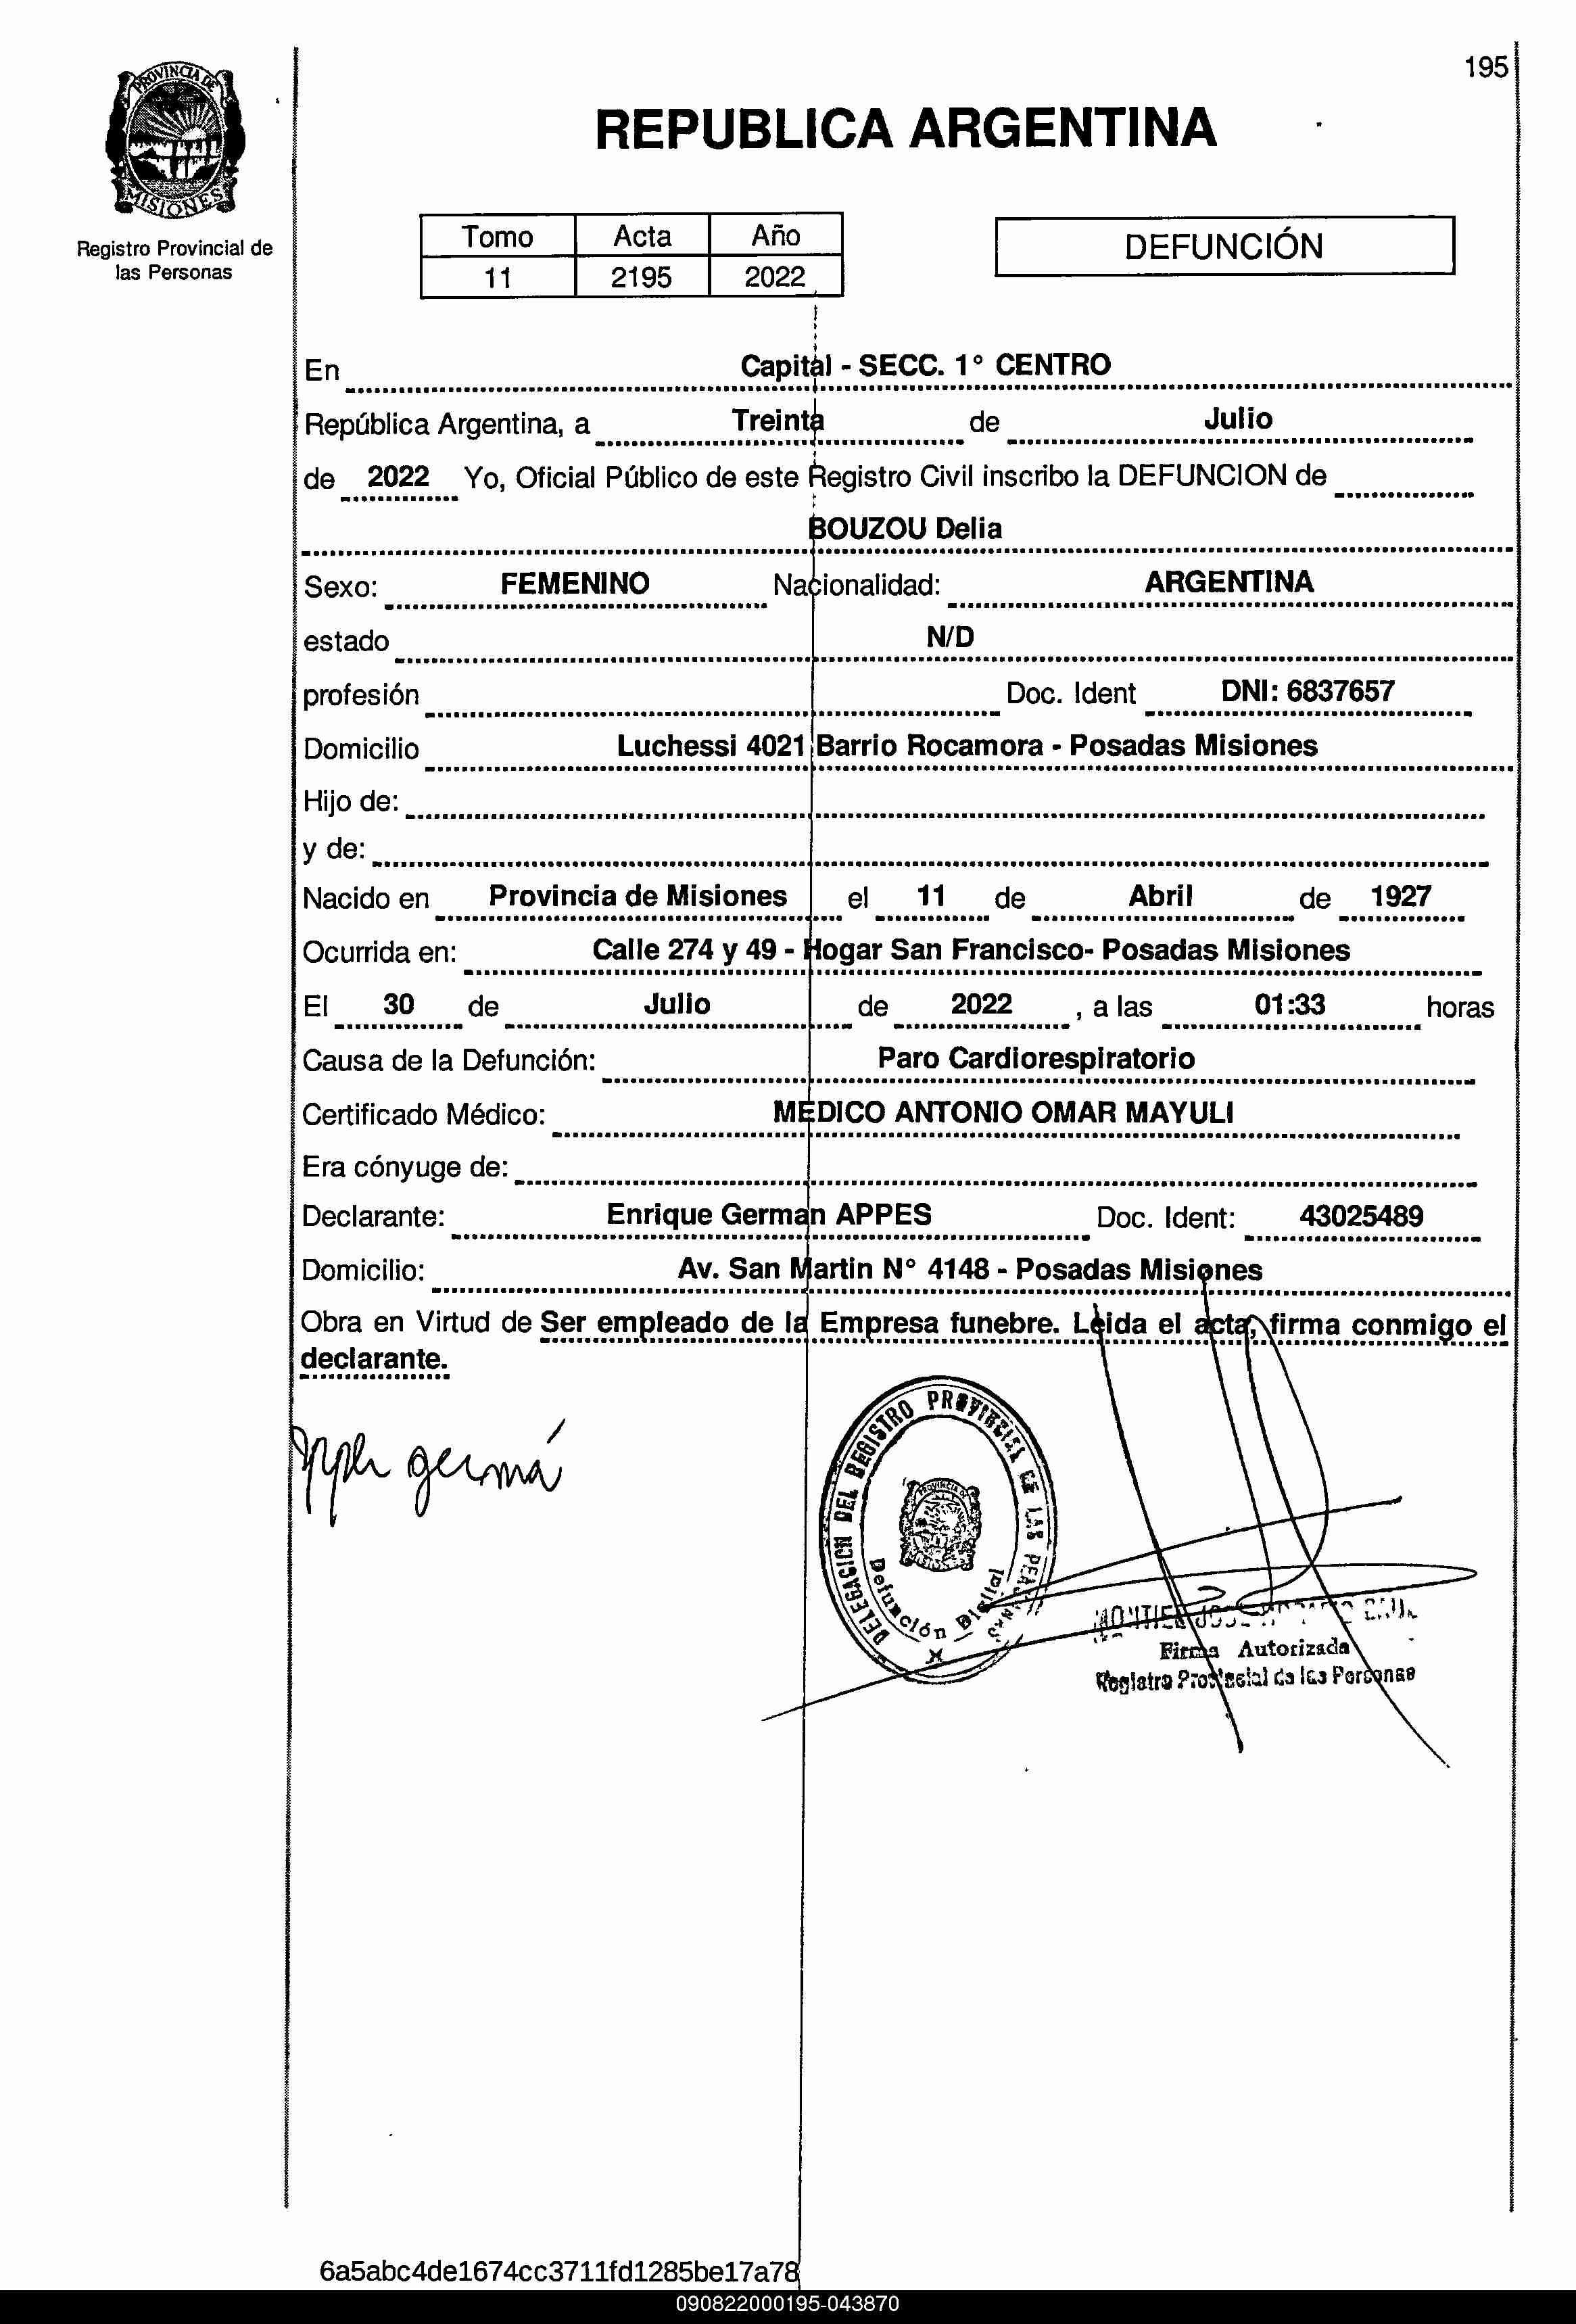 195
PROVINCIA DE
MISIONES
Registro Provincial de
las Personas
REPUBLICA ARGENTINA
Tomo Acta Año
11 2195 2022
DEFUNCIÓN
En Capital - SECC. 1° CENTRO
República Argentina, a Treinta de Julio
de 2022 Yo, Oficial Público de este Registro Civil inscribo la DEFUNCION de
BOUZOU Delia
Sexo: FEMENINO Nacionalidad: ARGENTINA
estado N/D
profesión Doc. Ident DNI: 6837657
Domicilio Luchessi 4021 Barrio Rocamora - Posadas Misiones
Hijo de:
y de:
Nacido en Provincia de Misiones el 11 de Abril de 1927
Ocurrida en: Calle 274 y 49 - Hogar San Francisco- Posadas Misiones
El 30 de Julio de 2022 , a las 01:33 horas
Causa de la Defunción: Paro Cardiorespiratorio
Certificado Médico: MEDICO ANTONIO OMAR MAYULI
Era cónyuge de:
Declarante: Enrique German APPES Doc. Ident: 43025489
Domicilio: Av. San Martin N° 4148 - Posadas Misiones
Obra en Virtud de Ser empleado de la Empresa funebre. Leida el acta, firma conmigo el
declarante.
germá
DELEGACION DEL REGISTRO PROVINCIAL DE LAS PERSONAS
Defunción Digital
Firma Autorizada
Registro Provincial de las Personas
6a5abc4de1674cc3711fd1285be17a78
090822000195-043870